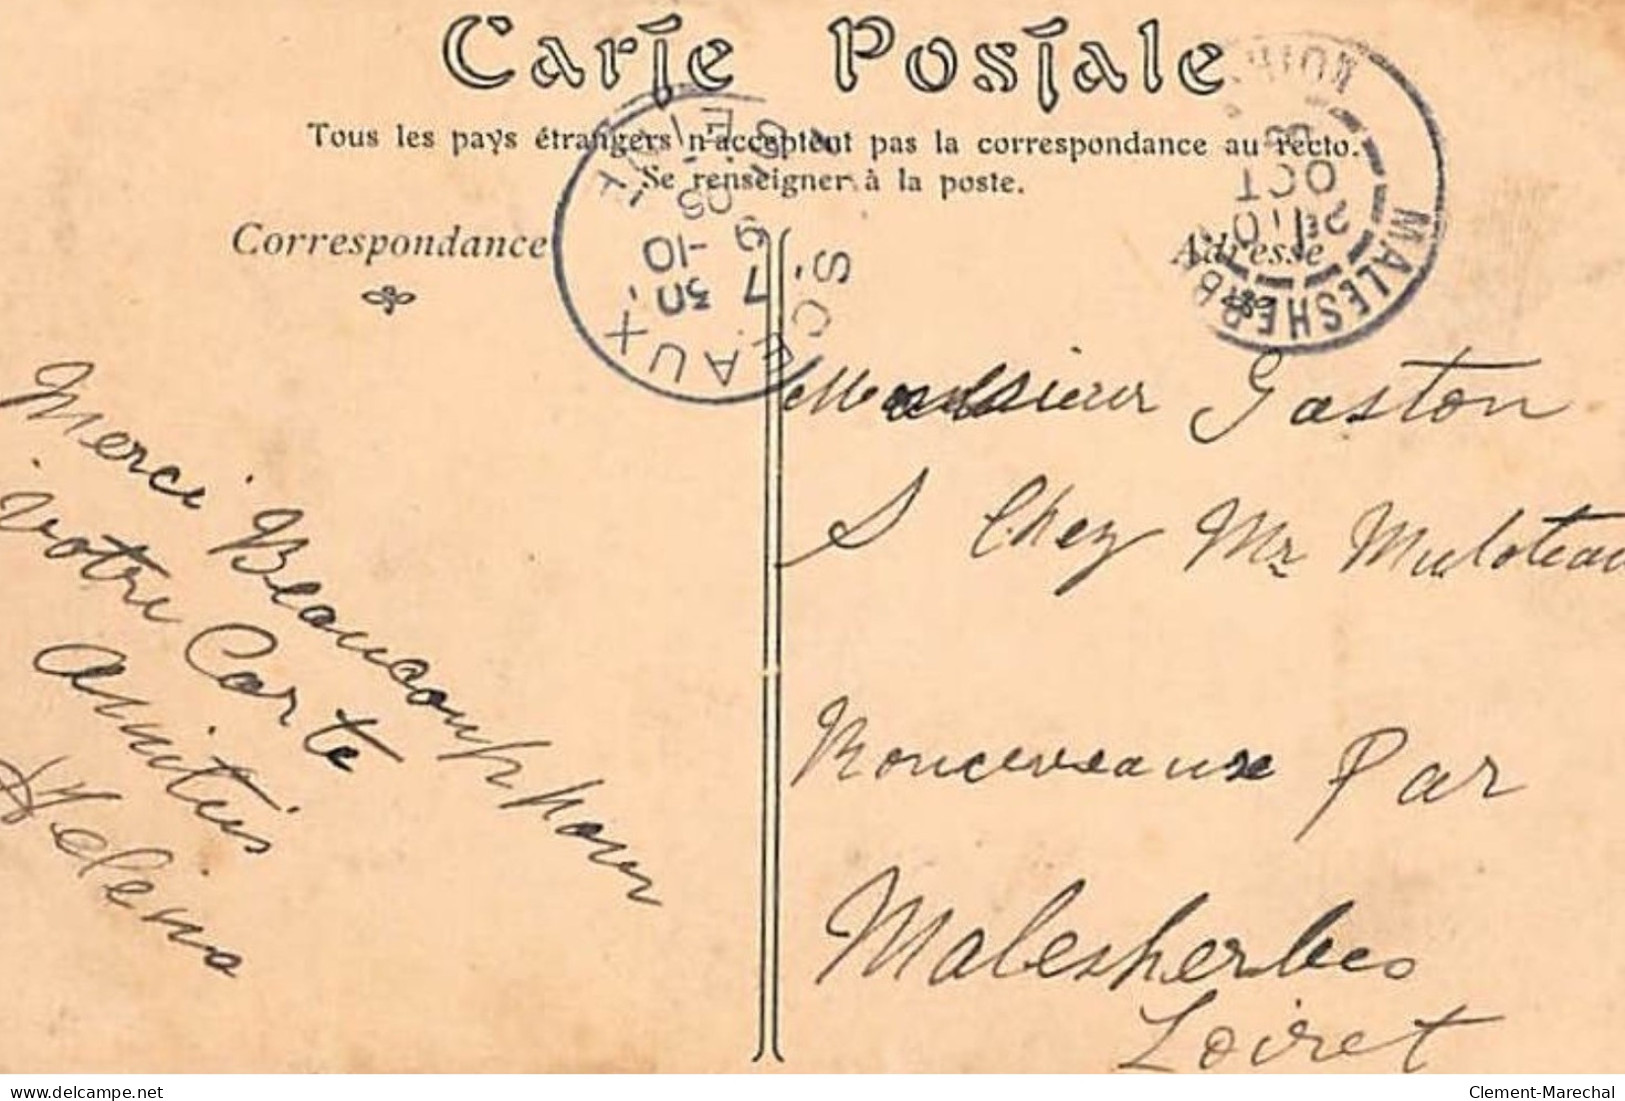 Carte Postale
Tous les pays étrangers n'acceptent pas la correspondance au recto.
Se renseigner à la poste.
Correspondance
Adresse
SCEAUX
7 30
9 -10
05
SEINE
MALESHERBES
OCT
Merci Beaucoup pour
votre Carte
amitiés
Hélèna
Monsieur Gaston
S Chez Mr Muloteau
Ronceveaux Par
Malesherbes
Loiret
delcampe.net
Clement-Marechal